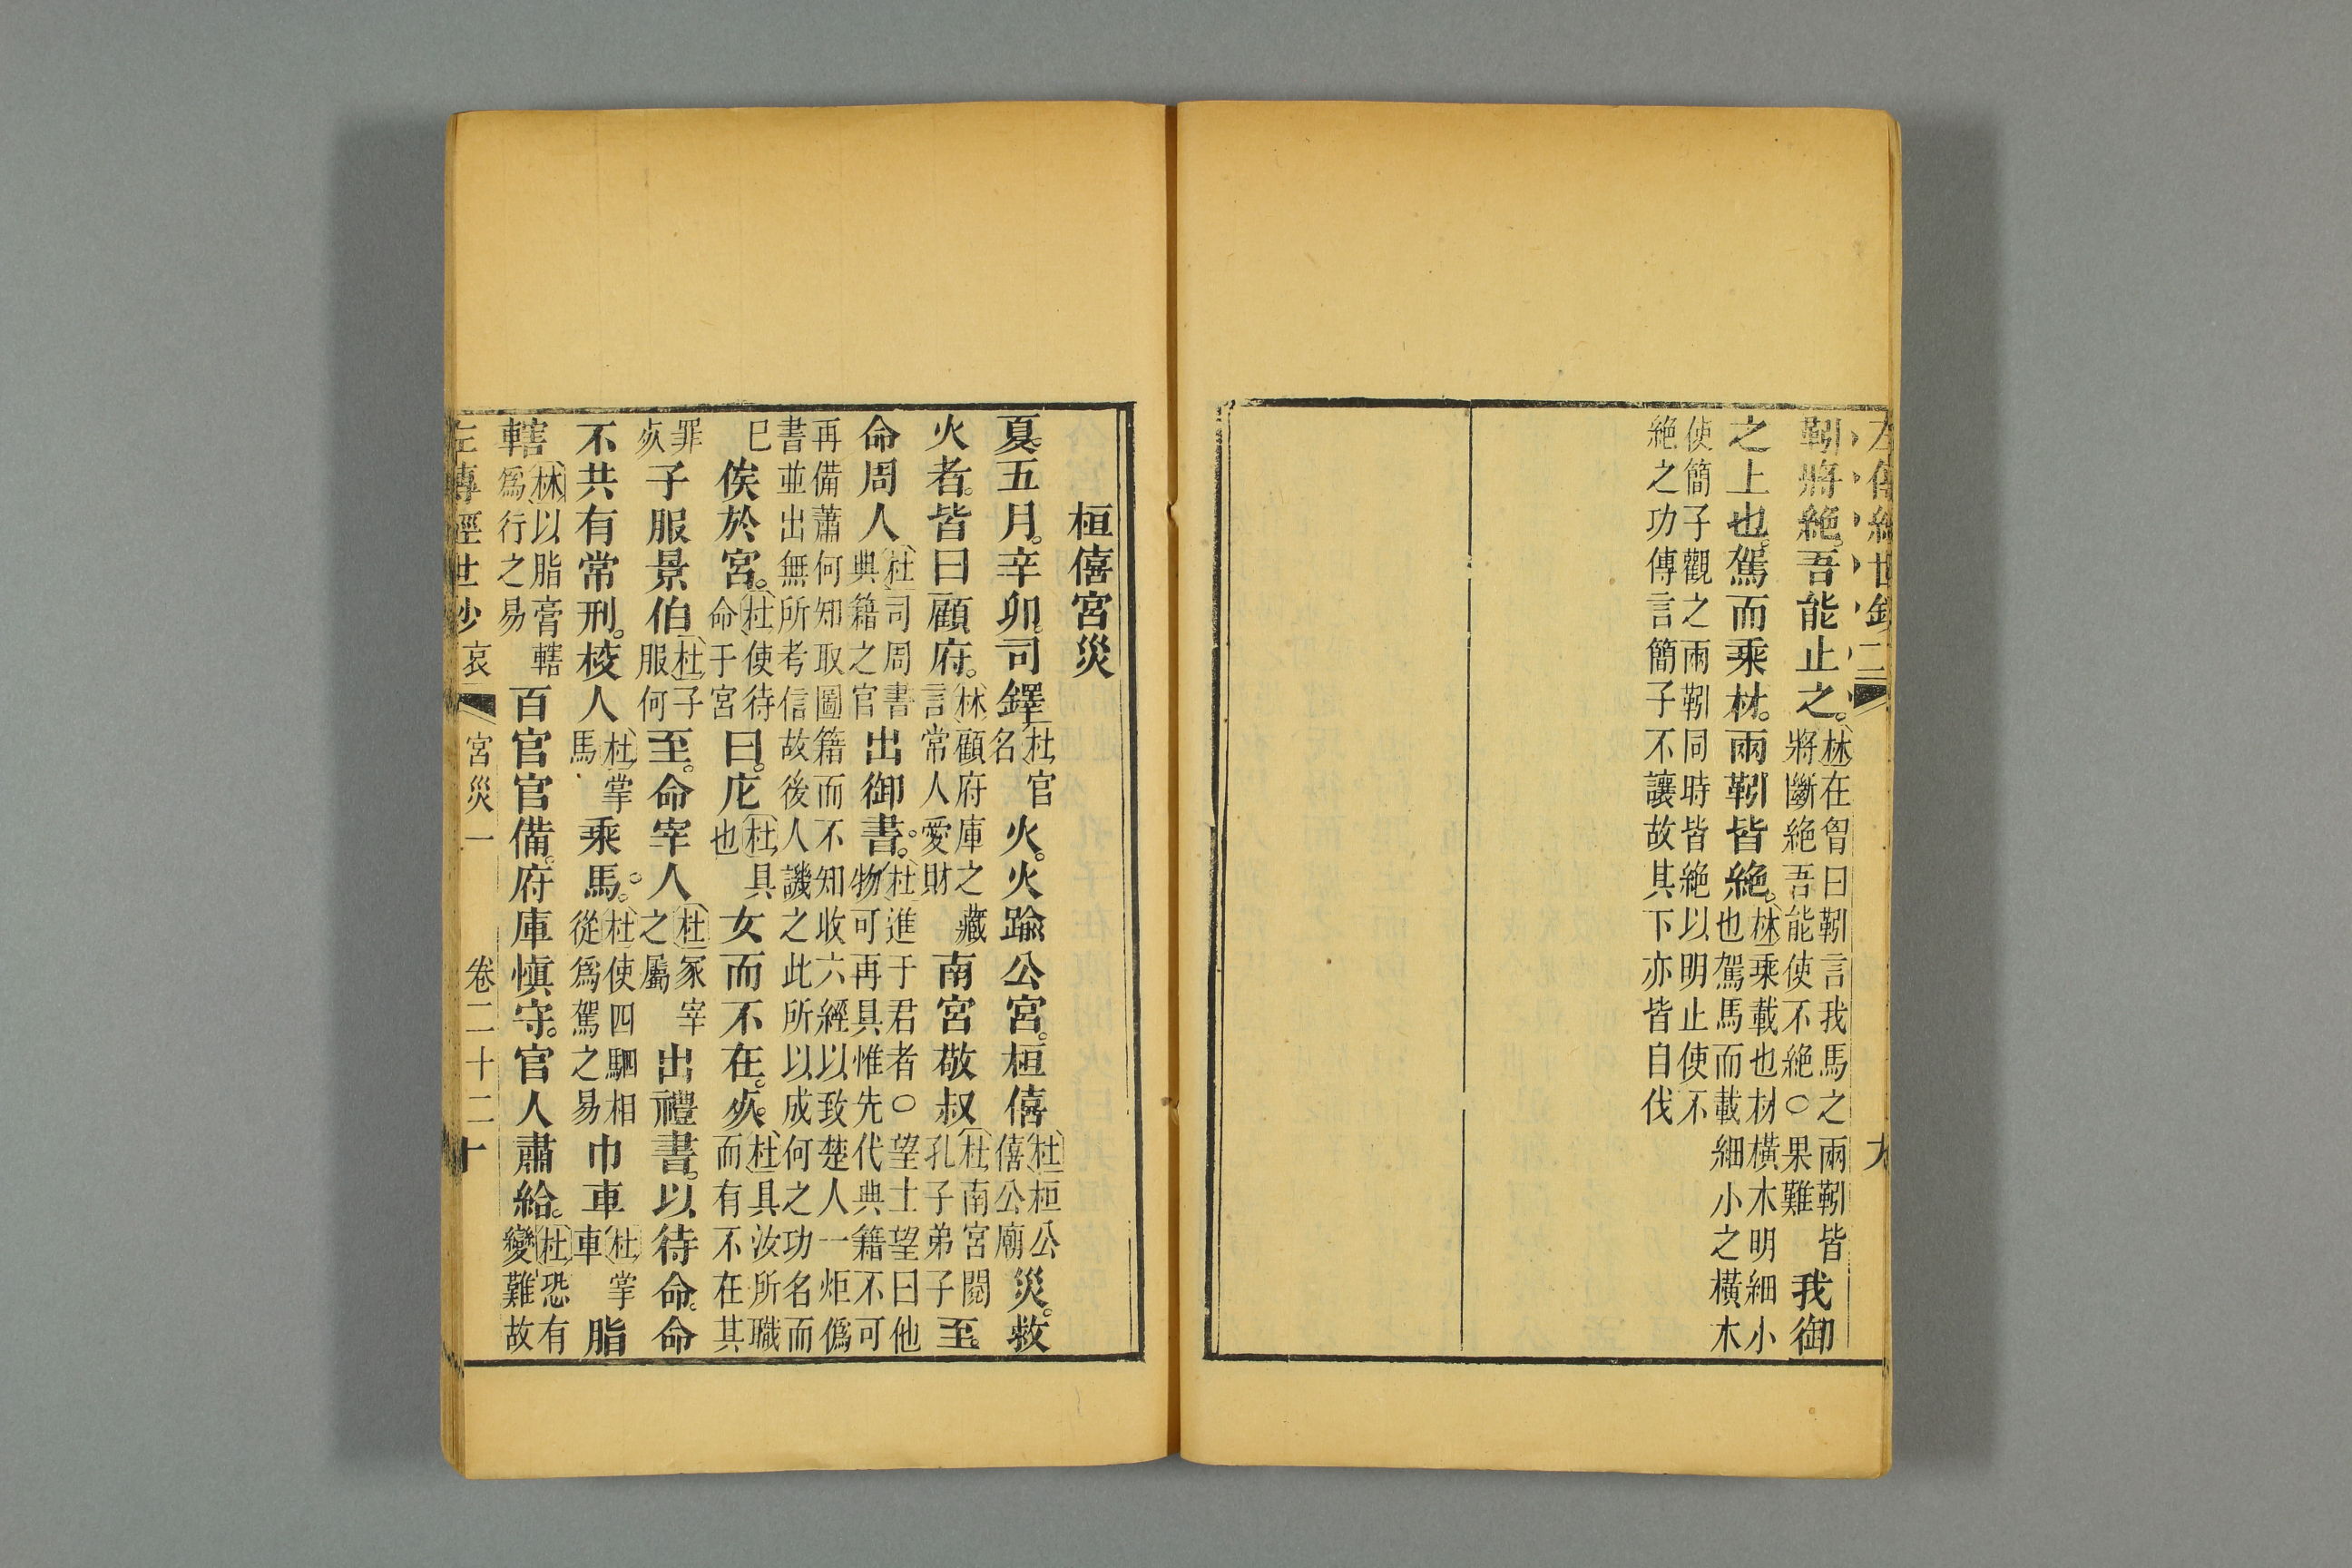 靷將絕。吾能止之。林在胷曰靷言我馬之兩靷皆將斷絕吾能使不絕○果難我御
之上也。駕而乘材。兩靷皆絕。林乘載也材橫木明細小也駕馬而載細小之橫木
使簡子觀之兩靷同時皆絕以明止使不
絕之功傳言簡子不讓故其下亦皆自伐
桓僖宮災
夏五月。辛卯。司鐸杜官名火。火踰公宮。桓僖杜桓公僖公廟災。救
火者。皆曰顧府。林顧府庫之藏言常人愛財南宮敬叔杜南宮閱孔子弟子至。
命周人杜司周書典籍之官出御書。杜進于君者○望士望曰他物可再具惟先代典籍不可
再備蕭何知取圖籍而不知收六經以致楚人一炬僞書並出無所考信故後人譏之此所以成何之功名而
已俟於宮。杜使待命于宮曰。庀杜具也女而不在。死。杜具汝所職而有不在其
罪死子服景伯杜子服何至。命宰人杜冢宰之屬出禮書。以待命。命
不共有常刑。校人杜掌馬乘馬。杜使四駟相從爲駕之易巾車杜掌車脂
轄林以脂膏轄爲行之易百官官備。府庫愼守。官人肅給。杜恐有變難故
左傳經世鈔 哀 宮災一 卷二十二 十